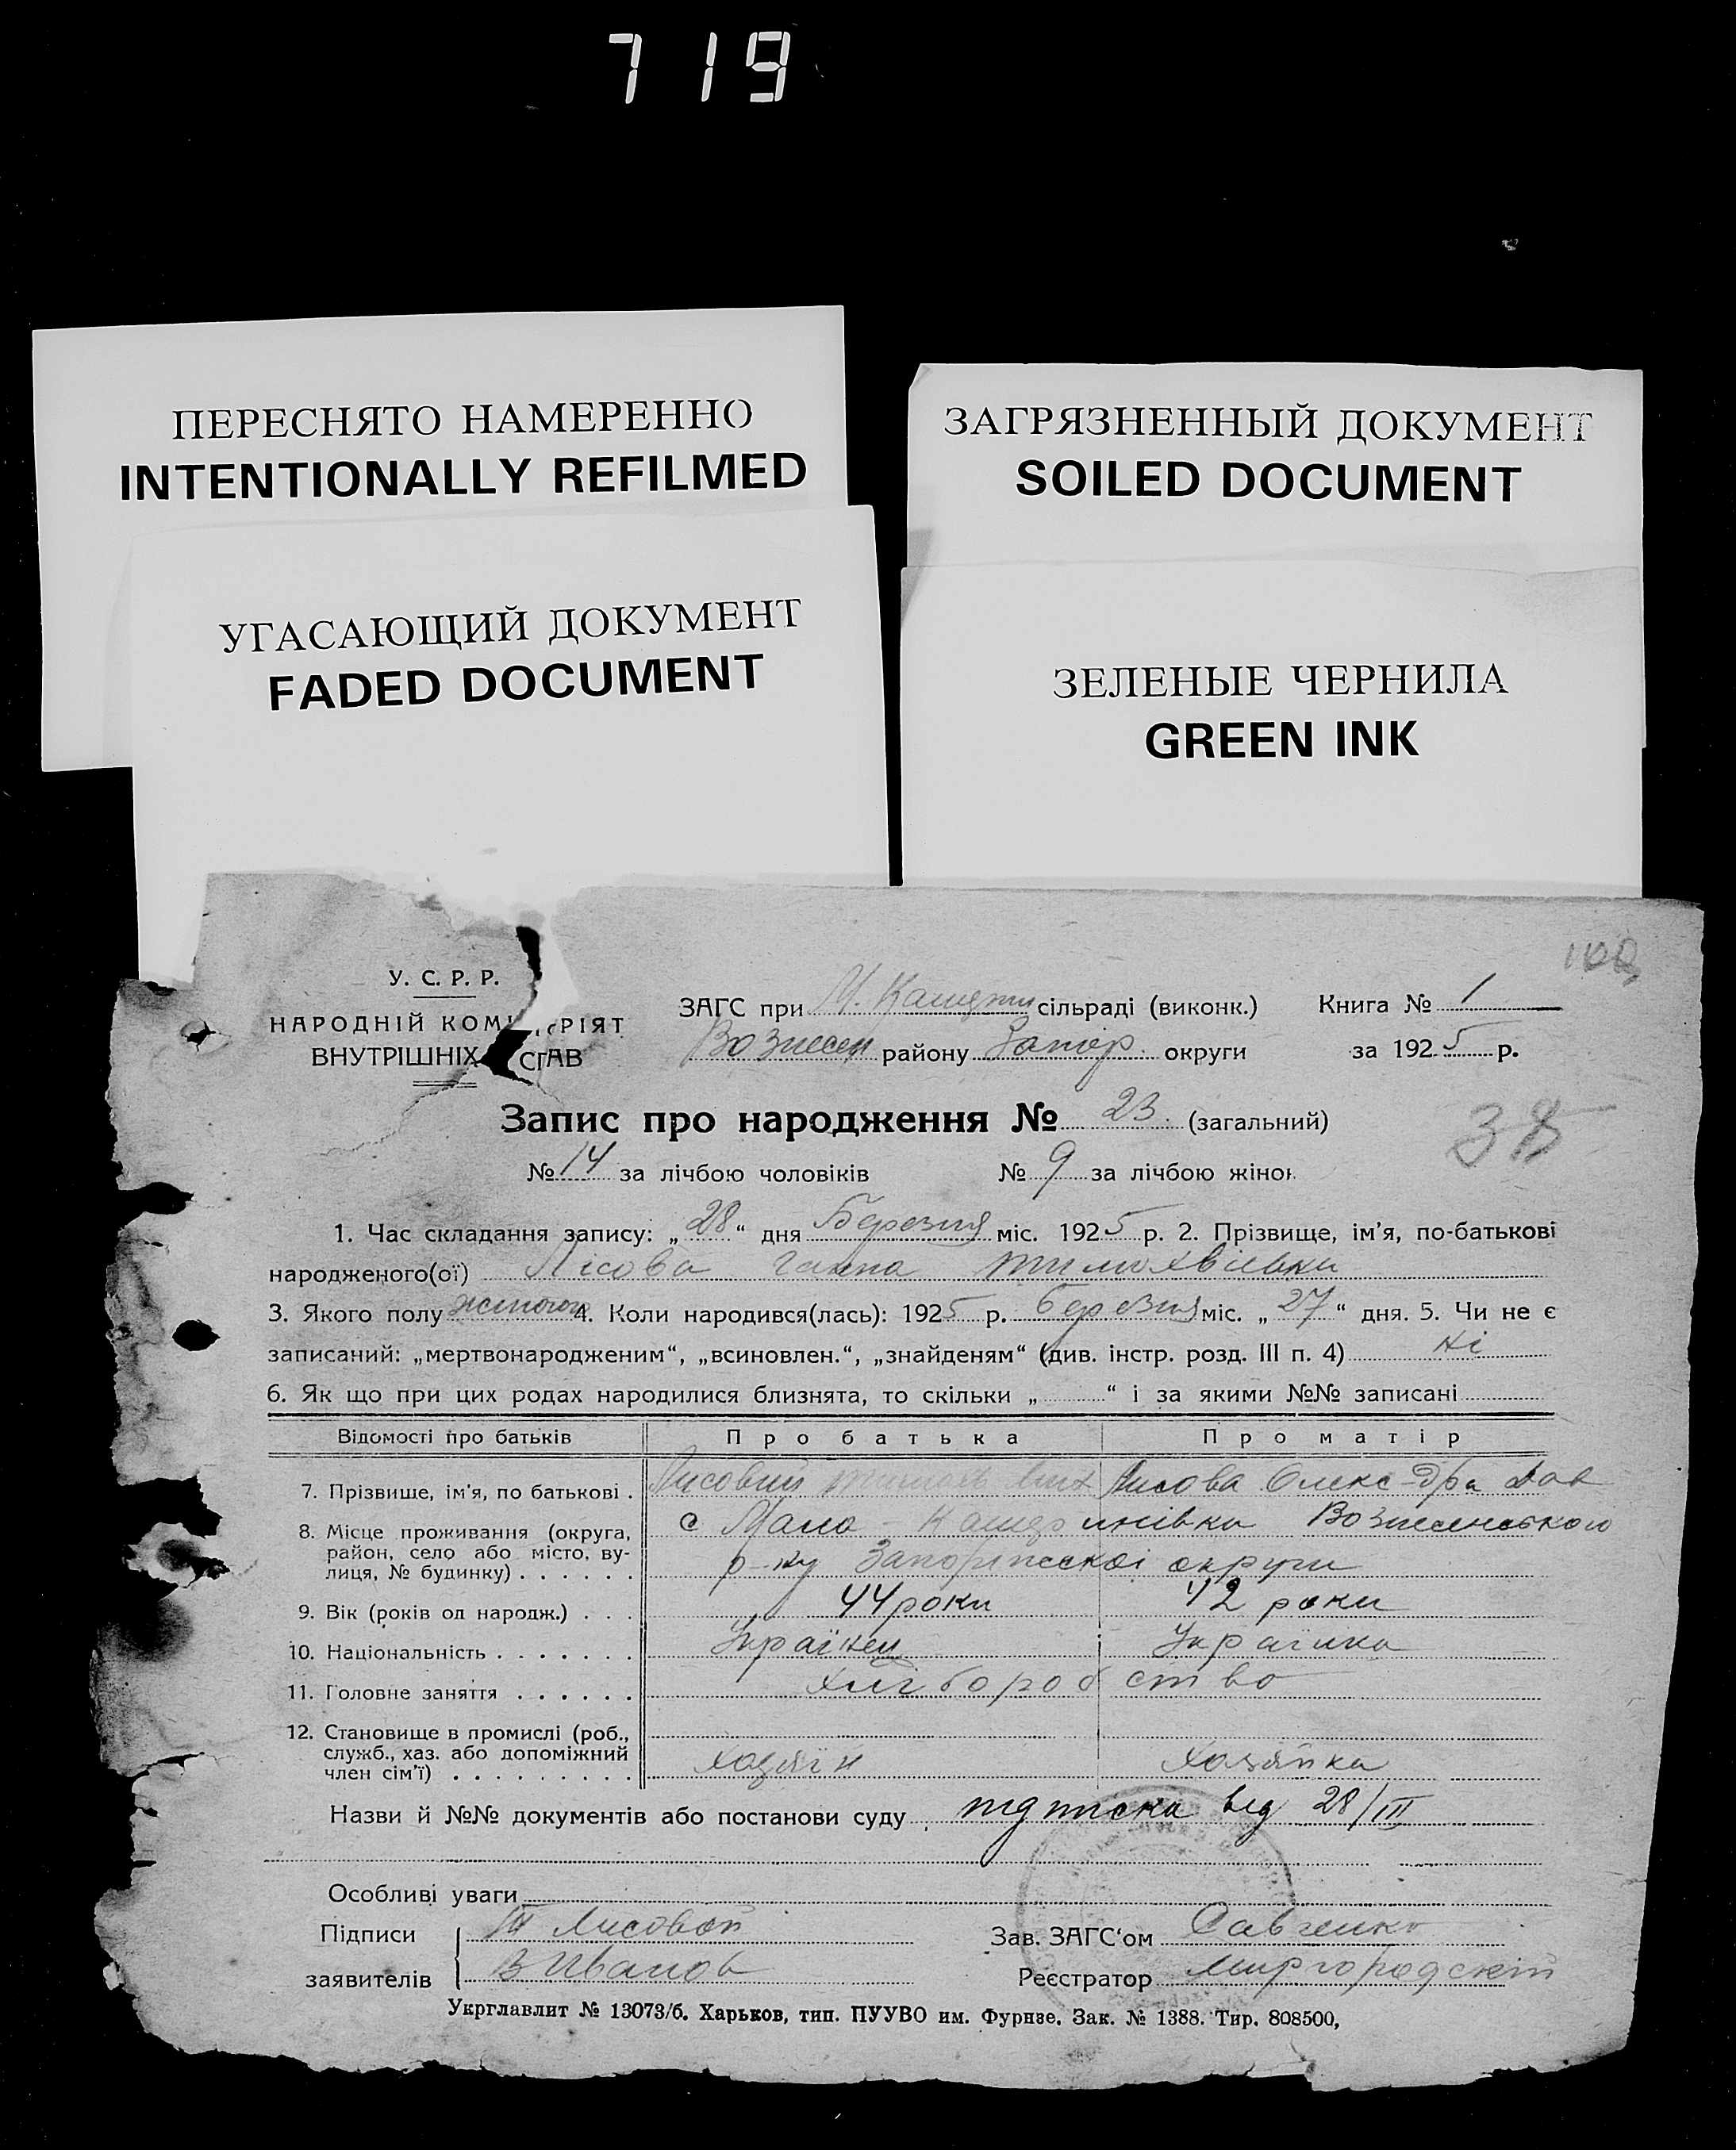 719
ПЕРЕСНЯТО НАМЕРЕННО
INTENTIONALLY REFILMED
ЗАГРЯЗНЕННЫЙ ДОКУМЕНТ
SOILED DOCUMENT
УГАСАЮЩИЙ ДОКУМЕНТ
FADED DOCUMENT
ЗЕЛЕНЫЕ ЧЕРНИЛА
GREEN INK
У. С. Р. Р.
НАРОДНІЙ КОМ РІЯТ
ВНУТРІШНІХ СПРАВ
ЗАГС при М. сільраді (виконк.) Книга № 1
Вознесен району Запор. округи за 1925 р.
Запис про народження № 23. (загальний)
38
№ 14 за лічбою чоловіків № 9 за лічбою жінок
1. Час складання запису: „28“ дня Березня міс. 1925 р. 2. Прізвище, ім’я, по-батькові
народженого(ої) Лісова Ганна Тимохвіівна
3. Якого полу жіночого 4. Коли народився(лась): 1925 р. березня міс. „27“ дня. 5. Чи не є
записаний: „мертвонародженим“, „всиновлен.“, „знайденям“ (див. інстр. розд. III п. 4) ні
6. Як що при цих родах народилися близнята, то скільки „ “ і за якими №№ записані
Відомості про батьків Про батька Про матір
7. Прізвище, ім’я, по батькові . Лисовий Лисова Олекс-дра Дав
8. Місце проживання (округа, район, село або місто, ву-лиця, № будинку) . . . . . . с Мало - Катеринівка Вознесенського
р-ну Запоріжськоі округи
9. Вік (років од народж.) . . . 44 роки 42 роки
10. Національність . . . . . . . Українец Українка
11. Головне заняття . . . . . . хліборобство
12. Становище в промислі (роб., служб., хаз. або допоміжний член сім’ї) . . . . . . . . . хозяїн хозяйка
Назви й №№ документів або постанови суду підписка від 28/III
Особливі уваги
Підписи Лисовой Зав. ЗАГС‘ом Савченко
заявителів В Иванов Реєстратор Миргородский
Укрглавлит № 13073/б. Харьков, тип. ПУУВО им. Фрунзе. Зак. № 1388. Тир. 808500,